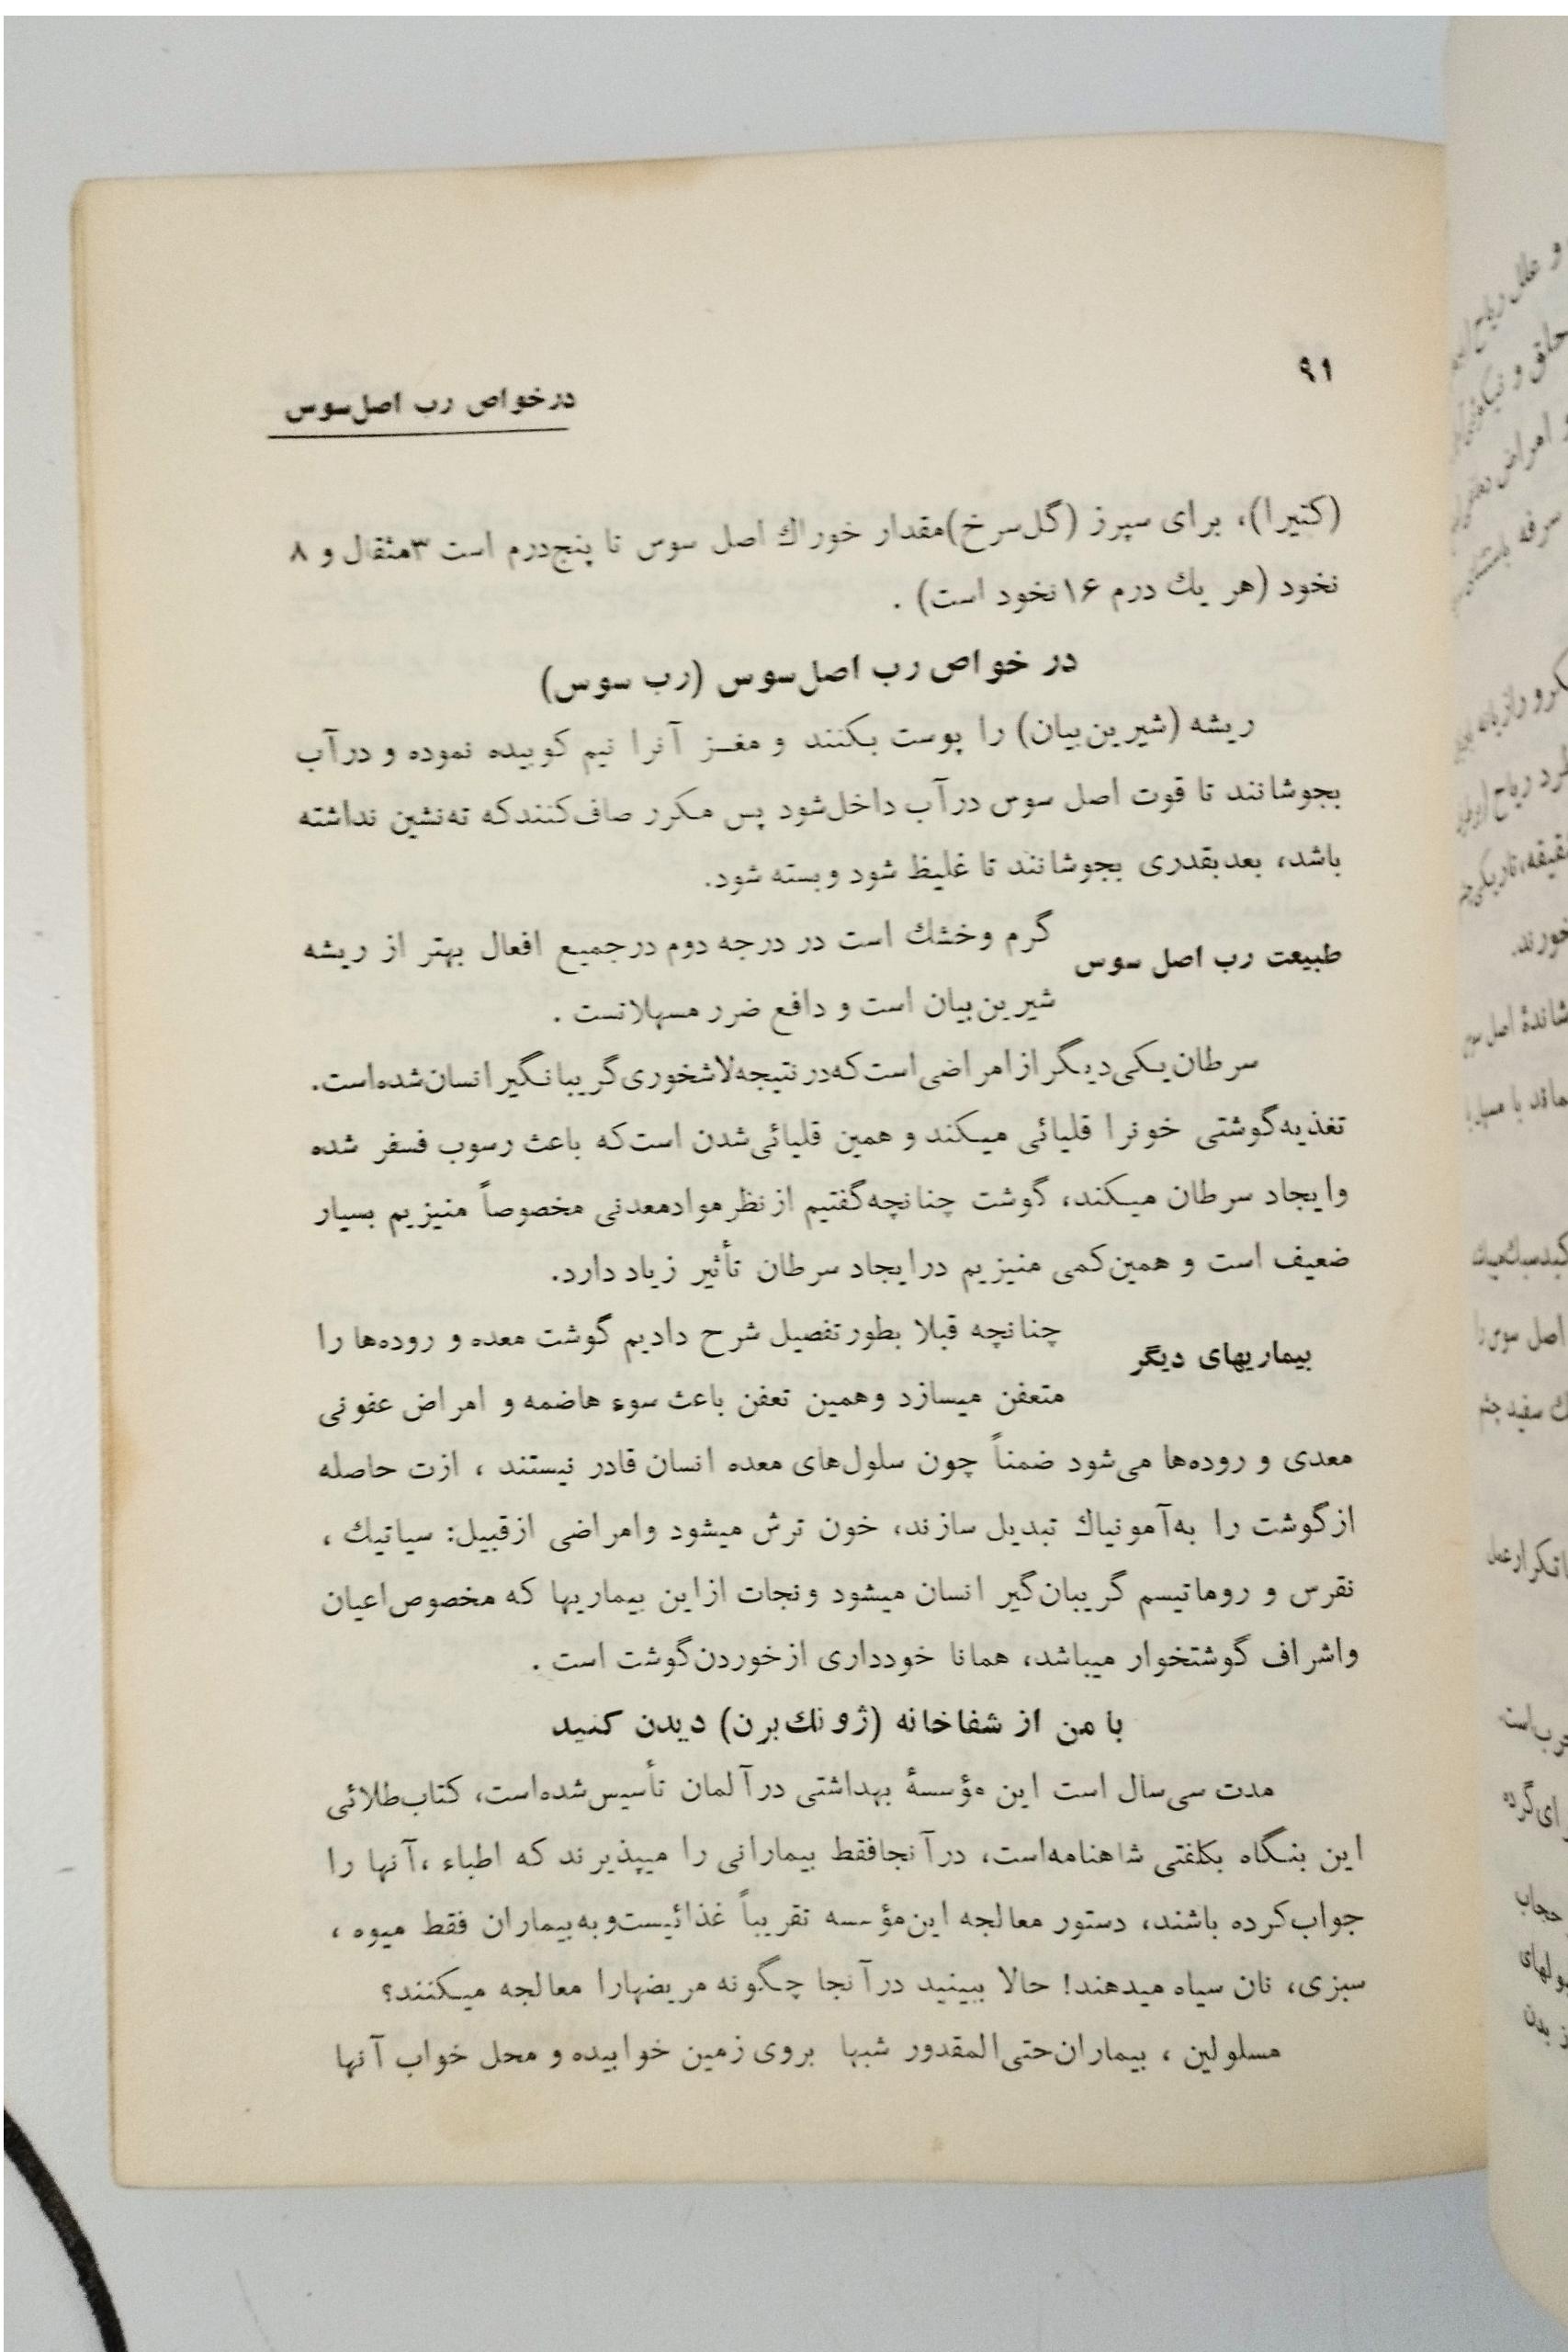 ۹۱
درخواص رب اصل‌سوس
(کتیرا)، برای سپرز (گل‌سرخ)مقدار خوراك اصل سوس تا پنج‌درم است ۳مثقال و ۸
نخود (هر یك درم ۱۶نخود است) .
در خواص رب اصل‌سوس (رب سوس)
ریشه (شیرین‌بیان) را پوست بکنند و مغز آنرا نیم کوبیده نموده و درآب
بجوشانند تا قوت اصل سوس درآب داخل‌شود پس مکرر صاف‌کنندکه ته‌نشین نداشته
باشد، بعدبقدری بجوشانند تا غلیظ شود وبسته شود.
طبیعت رب اصل سوس
گرم وخشك است در درجه دوم درجمیع افعال بهتر از ریشه
شیرین‌بیان است و دافع ضرر مسهلاتست .
سرطان‌یکی‌دیگرازامراضی‌است‌که‌درنتیجه‌لاشخوری‌گریبانگیرانسان‌شده‌است.
تغذیه‌گوشتی خونرا قلیائی میکند و همین قلیائی‌شدن است‌که باعث رسوب فسفر شده
وایجاد سرطان میکند، گوشت چنانچه‌گفتیم ازنظرموادمعدنی مخصوصاً منیزیم بسیار
ضعیف است و همین‌کمی منیزیم درایجاد سرطان تأثیر زیاد دارد.
بیماریهای دیگر
چنانچه قبلا بطورتفصیل شرح دادیم گوشت معده و روده‌ها را
متعفن میسازد وهمین تعفن باعث سوء هاضمه و امراض عفونی
معدی و روده‌ها می‌شود ضمناً چون سلول‌های معده انسان قادر نیستند ، ازت حاصله
ازگوشت را به‌آمونیاك تبدیل سازند، خون ترش میشود وامراضی ازقبیل: سیاتیك ،
نقرس و روماتیسم گریبان‌گیر انسان میشود ونجات ازاین بیماریها که مخصوص‌اعیان
واشراف گوشتخوار میباشد، همانا خودداری ازخوردن‌گوشت است .
با من از شفاخانه (ژونك‌برن) دیدن کنید
مدت سی‌سال است این مؤسسهٔ بهداشتی درآلمان تأسیس‌شده‌است، کتاب‌طلائی
این بنگاه بکلفتی شاهنامه‌است، درآنجافقط بیمارانی را میپذیرند که اطباء ،آنها را
جواب‌کرده باشند، دستور معالجه این‌مؤسسه تقریباً غذائیست‌وبه‌بیماران فقط میوه ،
سبزی، نان سیاه میدهند! حالا ببینید درآنجا چگونه مریضهارا معالجه میکنند؟
مسلولین ، بیماران‌حتی‌المقدور شبها بروی زمین خوابیده و محل خواب آنها